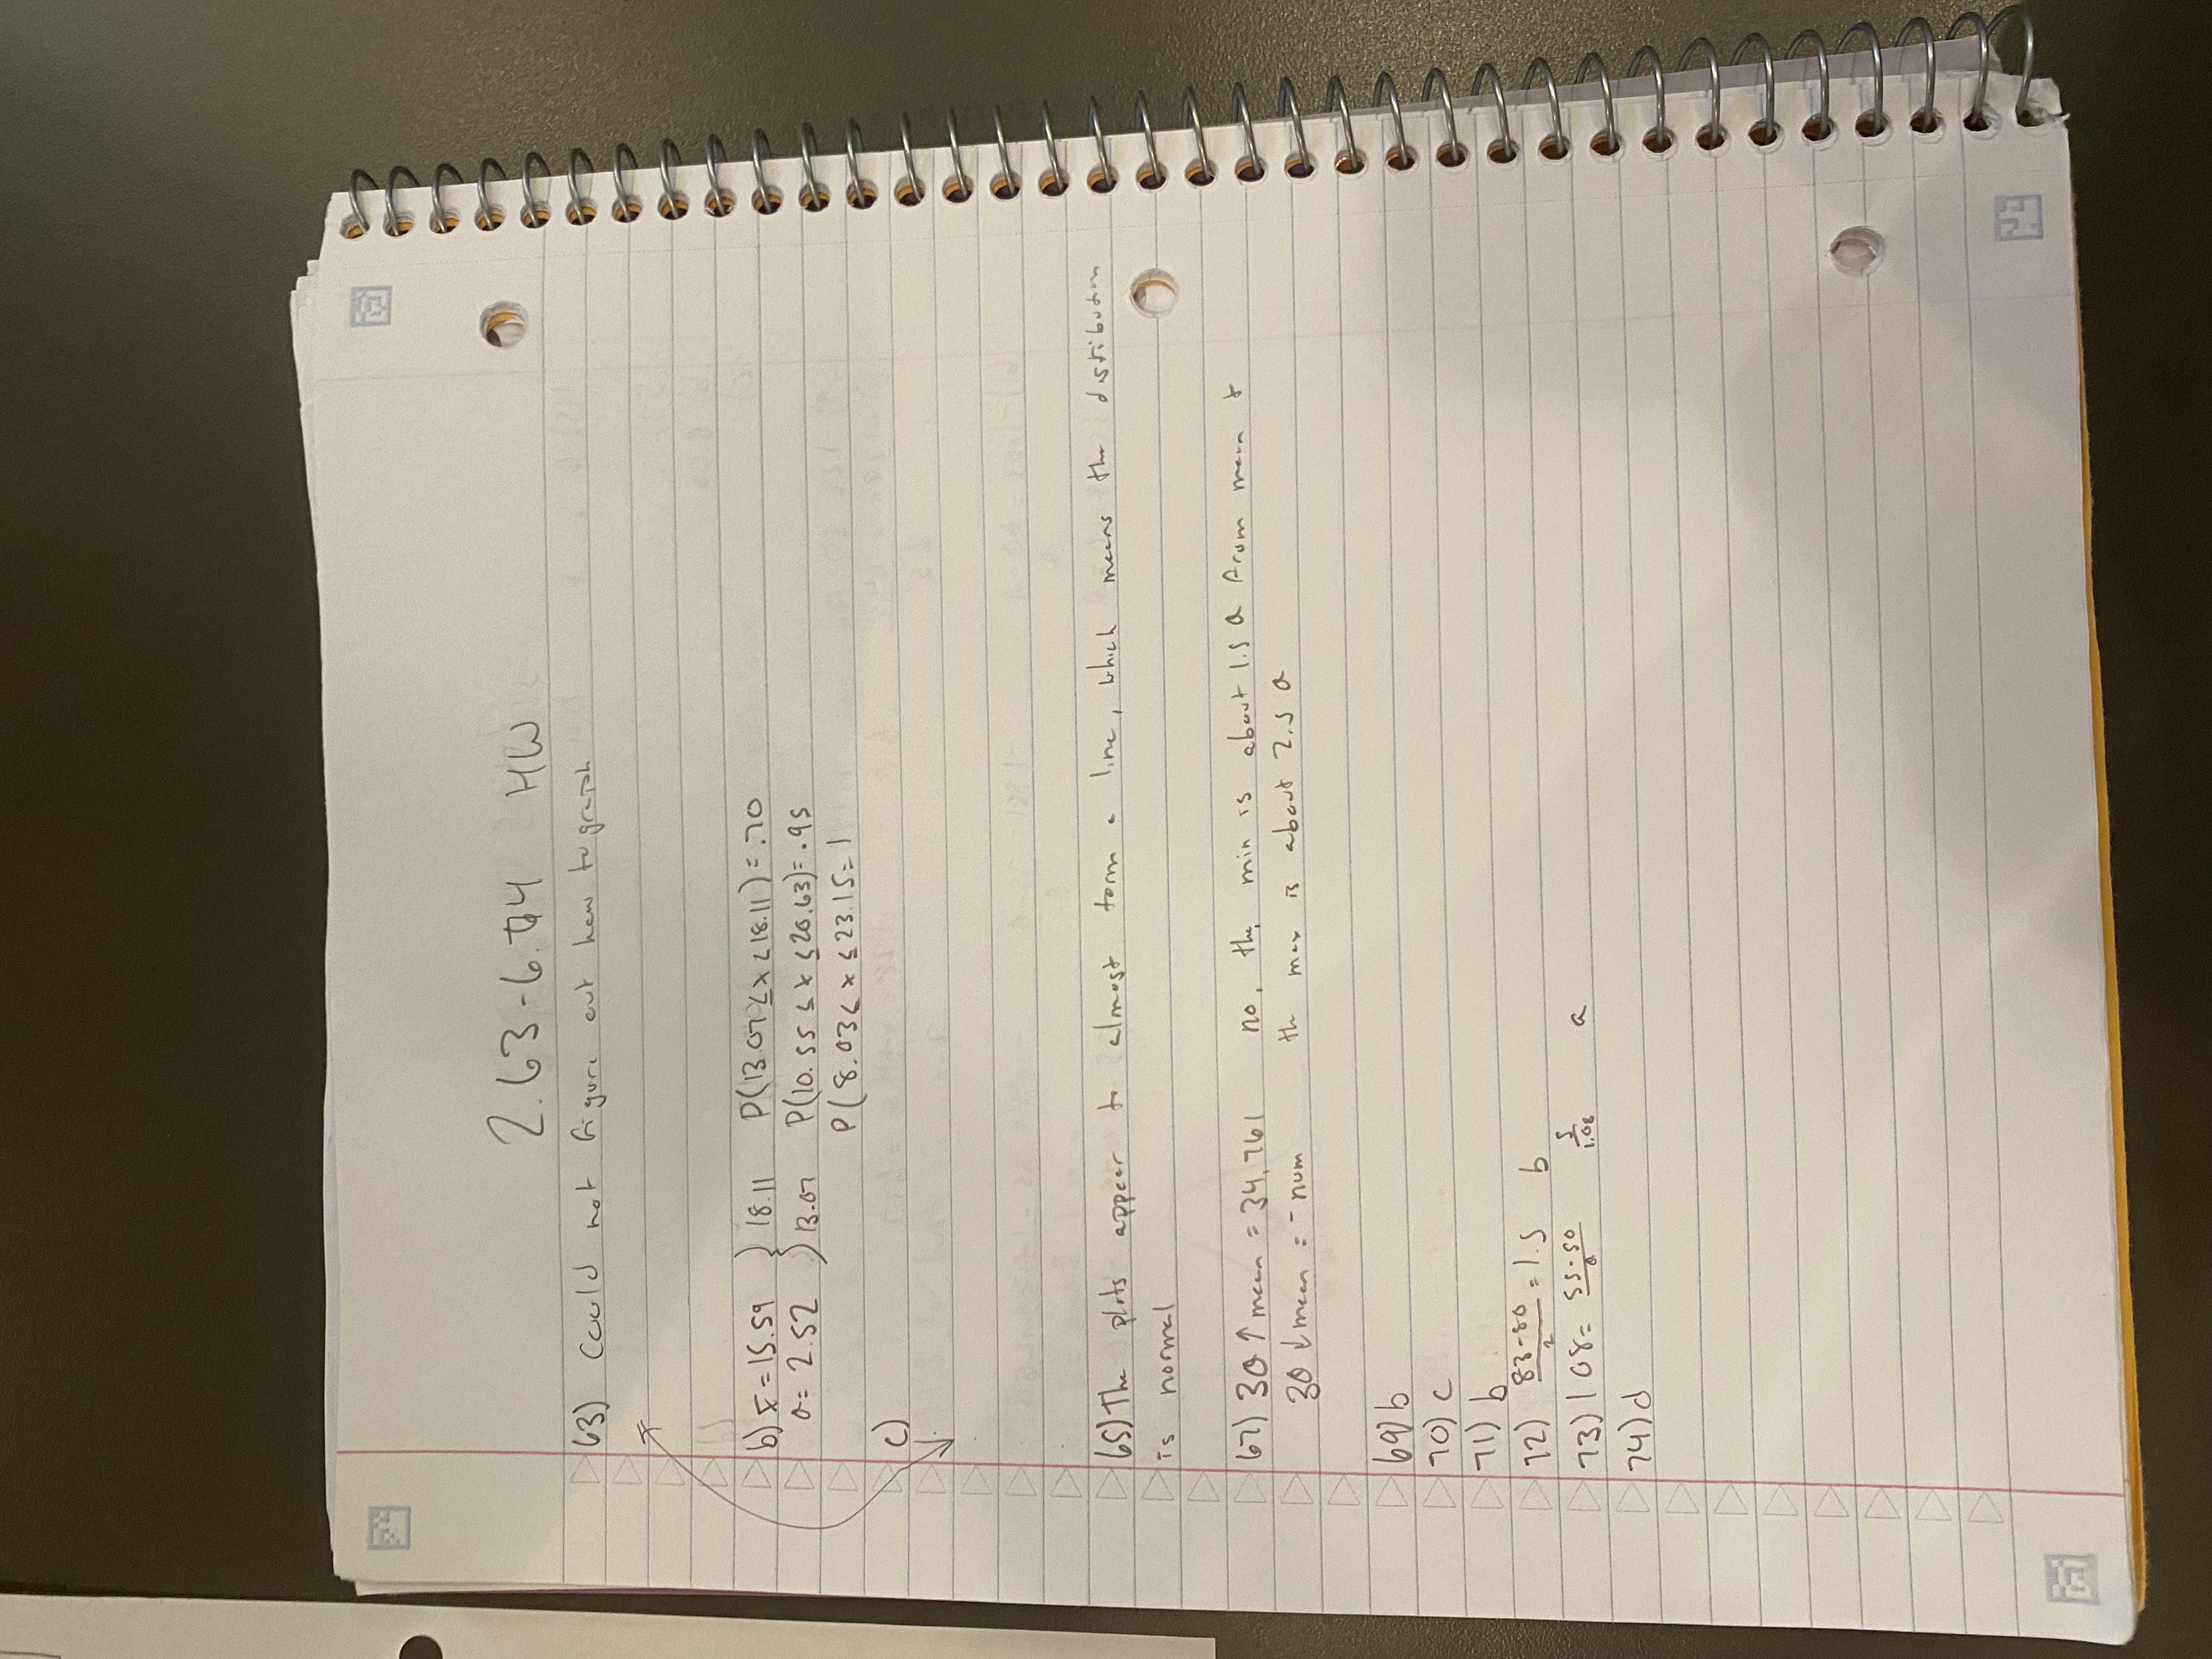 2.63-6.74 HW
63) Could not figure out how to graph
b) x̄ = 15.59 } 18.11 P(13.07 ≤ x ≤ 18.11) = .70
σ = 2.52 } 13.07 P(10.55 ≤ x ≤ 20.63) = .95
P(8.03 ≤ x ≤ 23.15 = 1
c)
65) The plots appear to almost form a line, which means the distribution
is normal
67) 3σ ↑ mean = 34,761 no, the min is about 1.5 σ from mean +
3σ ↓ mean = - num the max is about 2.5 σ
69) b
70) c
71) b
72) 83-80/2 = 1.5 b
73) 1.08 = 55-50/σ 5/1.08 a
74) d